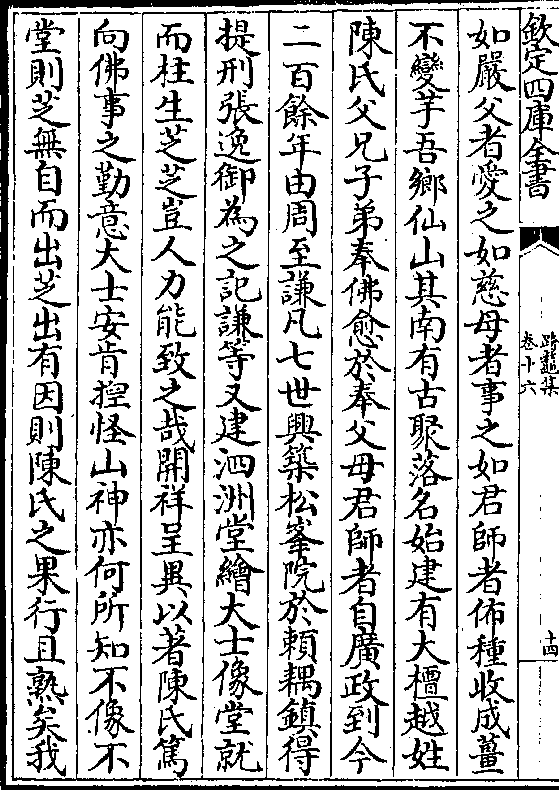 欽定四庫全書
跨鼇集
卷十六
十四
如嚴父者愛之如慈母者事之如君師者佈種收成薑
不變芋吾鄉仙山其南有古聚落名始建有大檀越姓
陳氏父兄子弟奉佛愈於奉父母君師者自廣政到今
二百餘年由周至謙凡七世興築松峯院於賴耦鎮得
提刑張逸御為之記謙等又建泗洲堂繪大士像堂就
而柱生芝芝豈人力能致之哉開祥呈異以著陳氏篤
向佛事之勤意大士安肯揑怪山神亦何所知不像不
堂則芝無自而出芝出有因則陳氏之果行且熟矣我